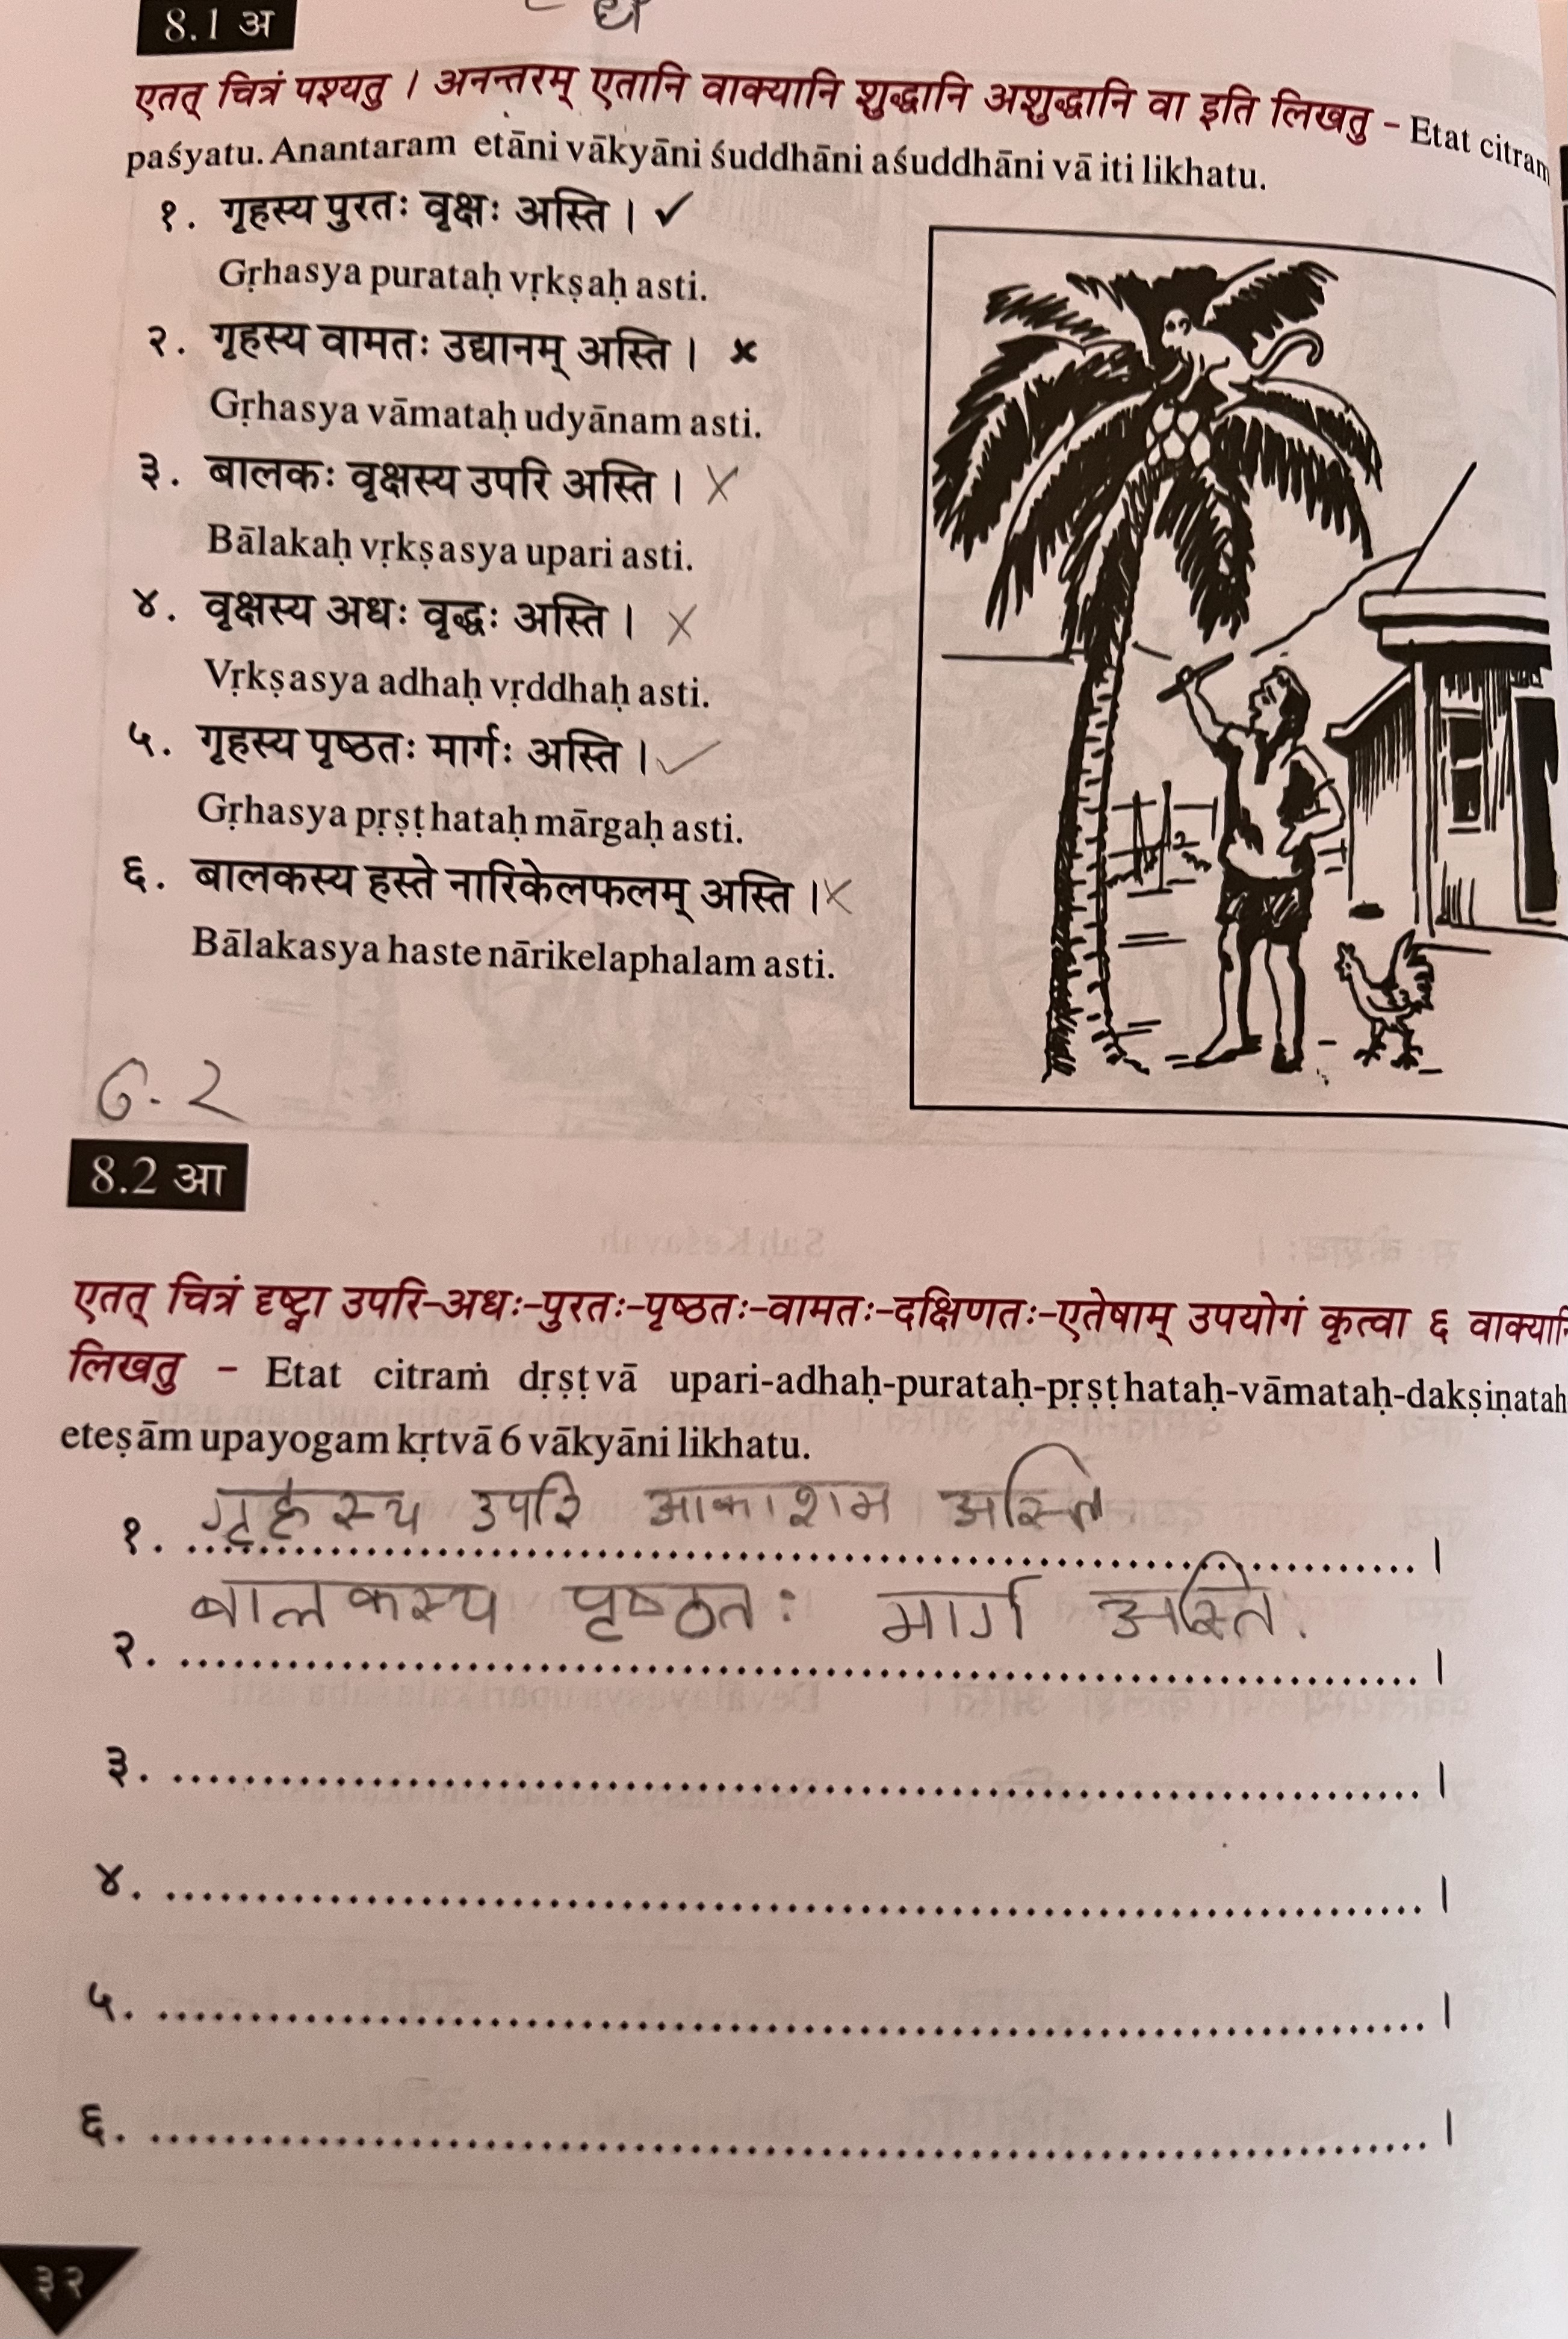 8.1 अ
एतत् चित्रं पश्यतु । अनन्तरम् एतानि वाक्यानि शुद्धानि अशुद्धानि वा इति लिखतु - Etat citram
paśyatu. Anantaram etāni vākyāni śuddhāni aśuddhāni vā iti likhatu.
१. गृहस्य पुरतः वृक्षः अस्ति । ✓
Gṛhasya purataḥ vṛkṣaḥ asti.
२. गृहस्य वामतः उद्यानम् अस्ति । ×
Gṛhasya vāmataḥ udyānam asti.
३. बालकः वृक्षस्य उपरि अस्ति । ×
Bālakaḥ vṛkṣasya upari asti.
४. वृक्षस्य अधः वृद्धः अस्ति । ×
Vṛkṣasya adhaḥ vṛddhaḥ asti.
५. गृहस्य पृष्ठतः मार्गः अस्ति । ✓
Gṛhasya pṛṣṭhataḥ mārgaḥ asti.
६. बालकस्य हस्ते नारिकेलफलम् अस्ति । ×
Bālakasya haste nārikelaphalam asti.
G.2
8.2 आ
एतत् चित्रं दृष्ट्वा उपरि-अधः-पुरतः-पृष्ठतः-वामतः-दक्षिणतः-एतेषाम् उपयोगं कृत्वा ६ वाक्यानि
लिखतु - Etat citraṁ dṛṣṭvā upari-adhaḥ-purataḥ-pṛṣṭhataḥ-vāmataḥ-dakṣiṇataḥ
eteṣām upayogam kṛtvā 6 vākyāni likhatu.
१. गृहस्य उपरि आकाशम अस्ति ।
२. बालकस्य पृष्ठतः मार्ग अस्ति. ।
३. ।
४. ।
५. ।
६. ।
३२